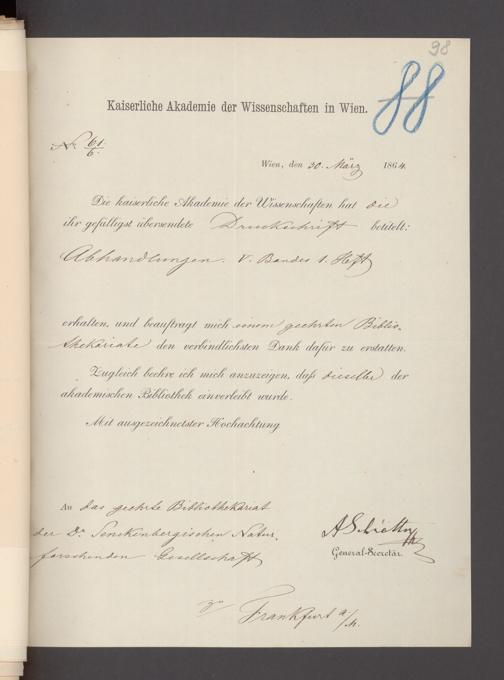 98
88
Kaiserliche Akademie der Wissenschaften in Wien.
No. 61./6.
Wien, den 30. März 1864.
Die kaiserliche Akademie der Wissenschaften hat die
ihr gefälligst übersendete Druckschrift betitelt:
Abhandlungen. V. Bandes 1. Heft
erhalten, und beauftragt mich einem geehrten Biblio-
thekariate den verbindlichsten Dank dafür zu erstatten.
Zugleich beehre ich mich anzuzeigen, daß dieselbe der
akademischen Bibliothek einverleibt wurde.
Mit ausgezeichnetster Hochachtung
An das geehrte Bibliothekariat
der Dr. Senckenbergischen Natur-
forschenden Gesellschaft
ASchrötter
General-Secretär.
zu Frankfurt a/M.